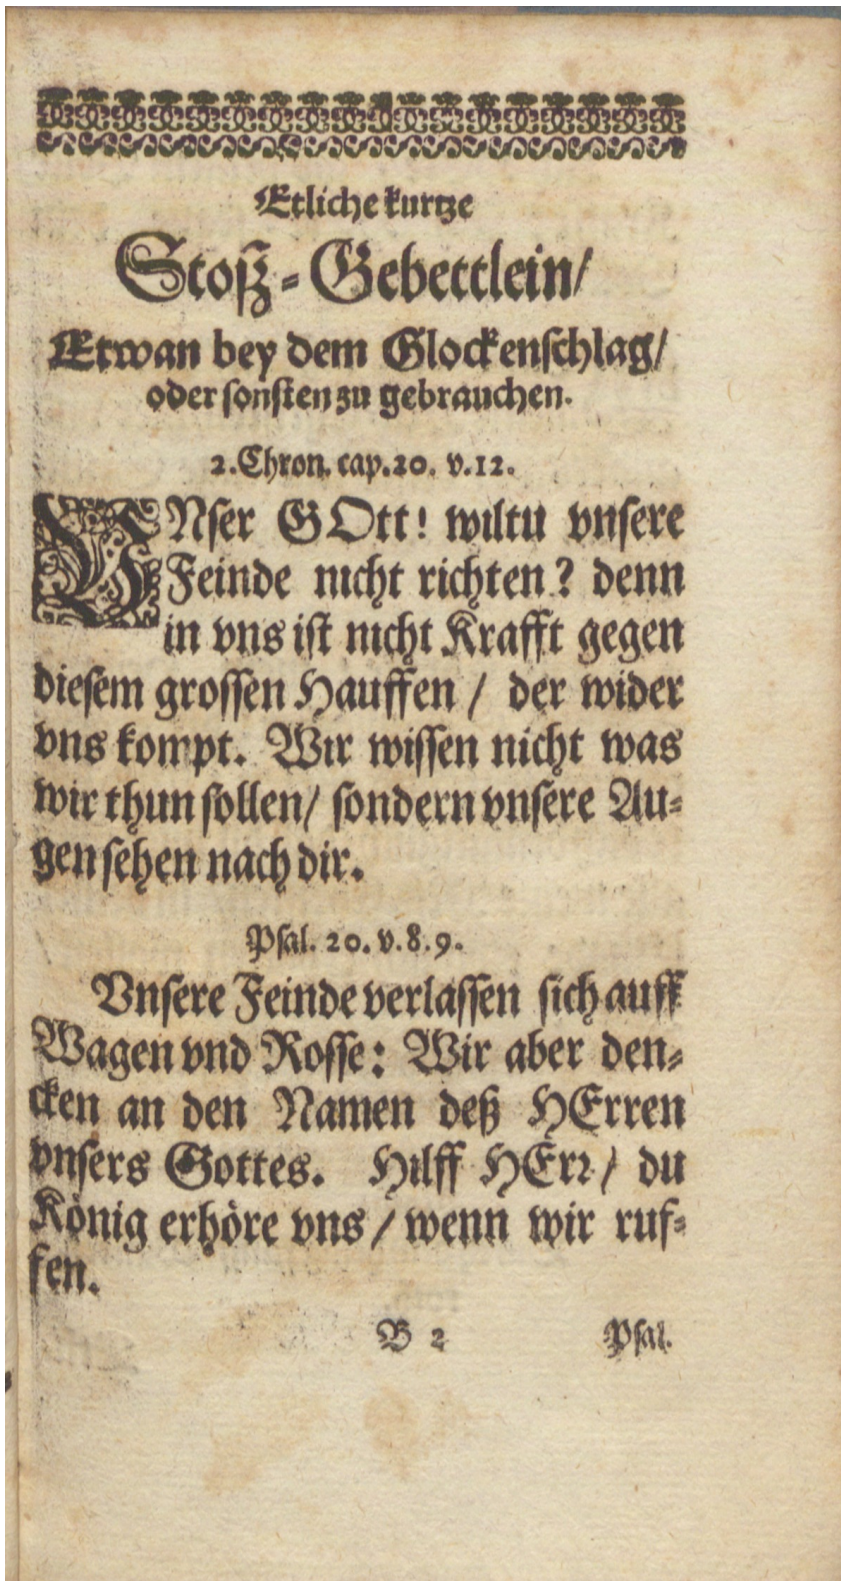 Etliche kurtze
Stoß-Gebettlein/
Etwan bey dem Glockenschlag/
oder sonsten zu gebrauchen.
2. Chron. cap. 20. v. 12.
VNser GOtt! wiltu vnsere
Feinde nicht richten? denn
in vns ist nicht Krafft gegen
diesem grossen Hauffen / der wider
vns kompt. Wir wissen nicht was
wir thun sollen/ sondern vnsere Au-
gen sehen nach dir.
Psal. 20. v. 8. 9.
Vnsere Feinde verlassen sich auff
Wagen vnd Rosse: Wir aber den-
cken an den Namen deß HErren
vnsers Gottes. Hilff HErr/ du
König erhöre vns / wenn wir ruf-
fen.
B 2 Psal.